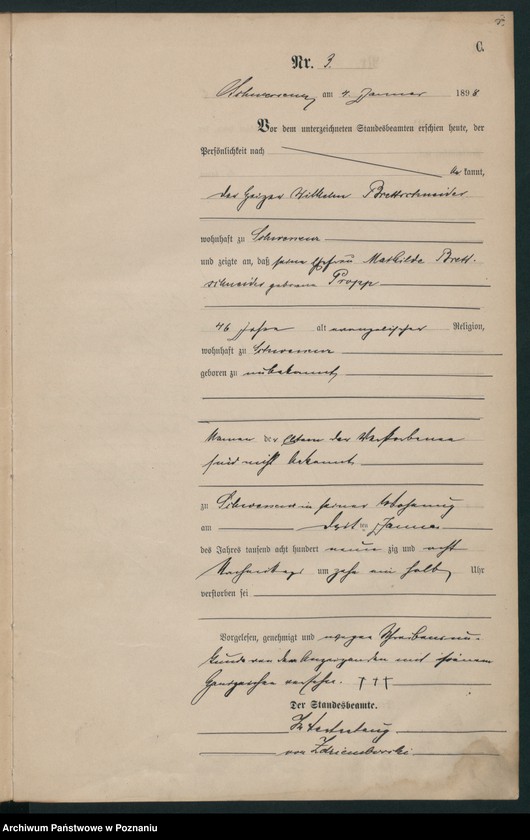 8.
C.
Nr. 3.
Schwersenz am 4. Januar 1898
Vor dem unterzeichneten Standesbeamten erschien heute, der
Persönlichkeit nach
be kannt,
der Geiger Wilhelm Brettschneider
wohnhaft zu Schwersenz
und zeigte an, daß seine Ehefrau Mathilde Brett-
schneider geborene Propp
46 Jahre alt evangelischer Religion,
wohnhaft zu Schwersenz
geboren zu unbekannt
Namen der Eltern der Verstorbenen
sind nicht bekannt
zu Schwersenz in seiner Wohnung
am Dritten Januar
des Jahres tausend acht hundert neun zig und acht
Nachmittags um zehn ein halb Uhr
verstorben sei
Vorgelesen, genehmigt und wegen Schreibensun-
kunde von dem Anzeigenden mit seinem
Handzeichen versehen. †††
Der Standesbeamte.
In Vertretung
von Zdziembowski
Archiwum Państwowe w Poznaniu